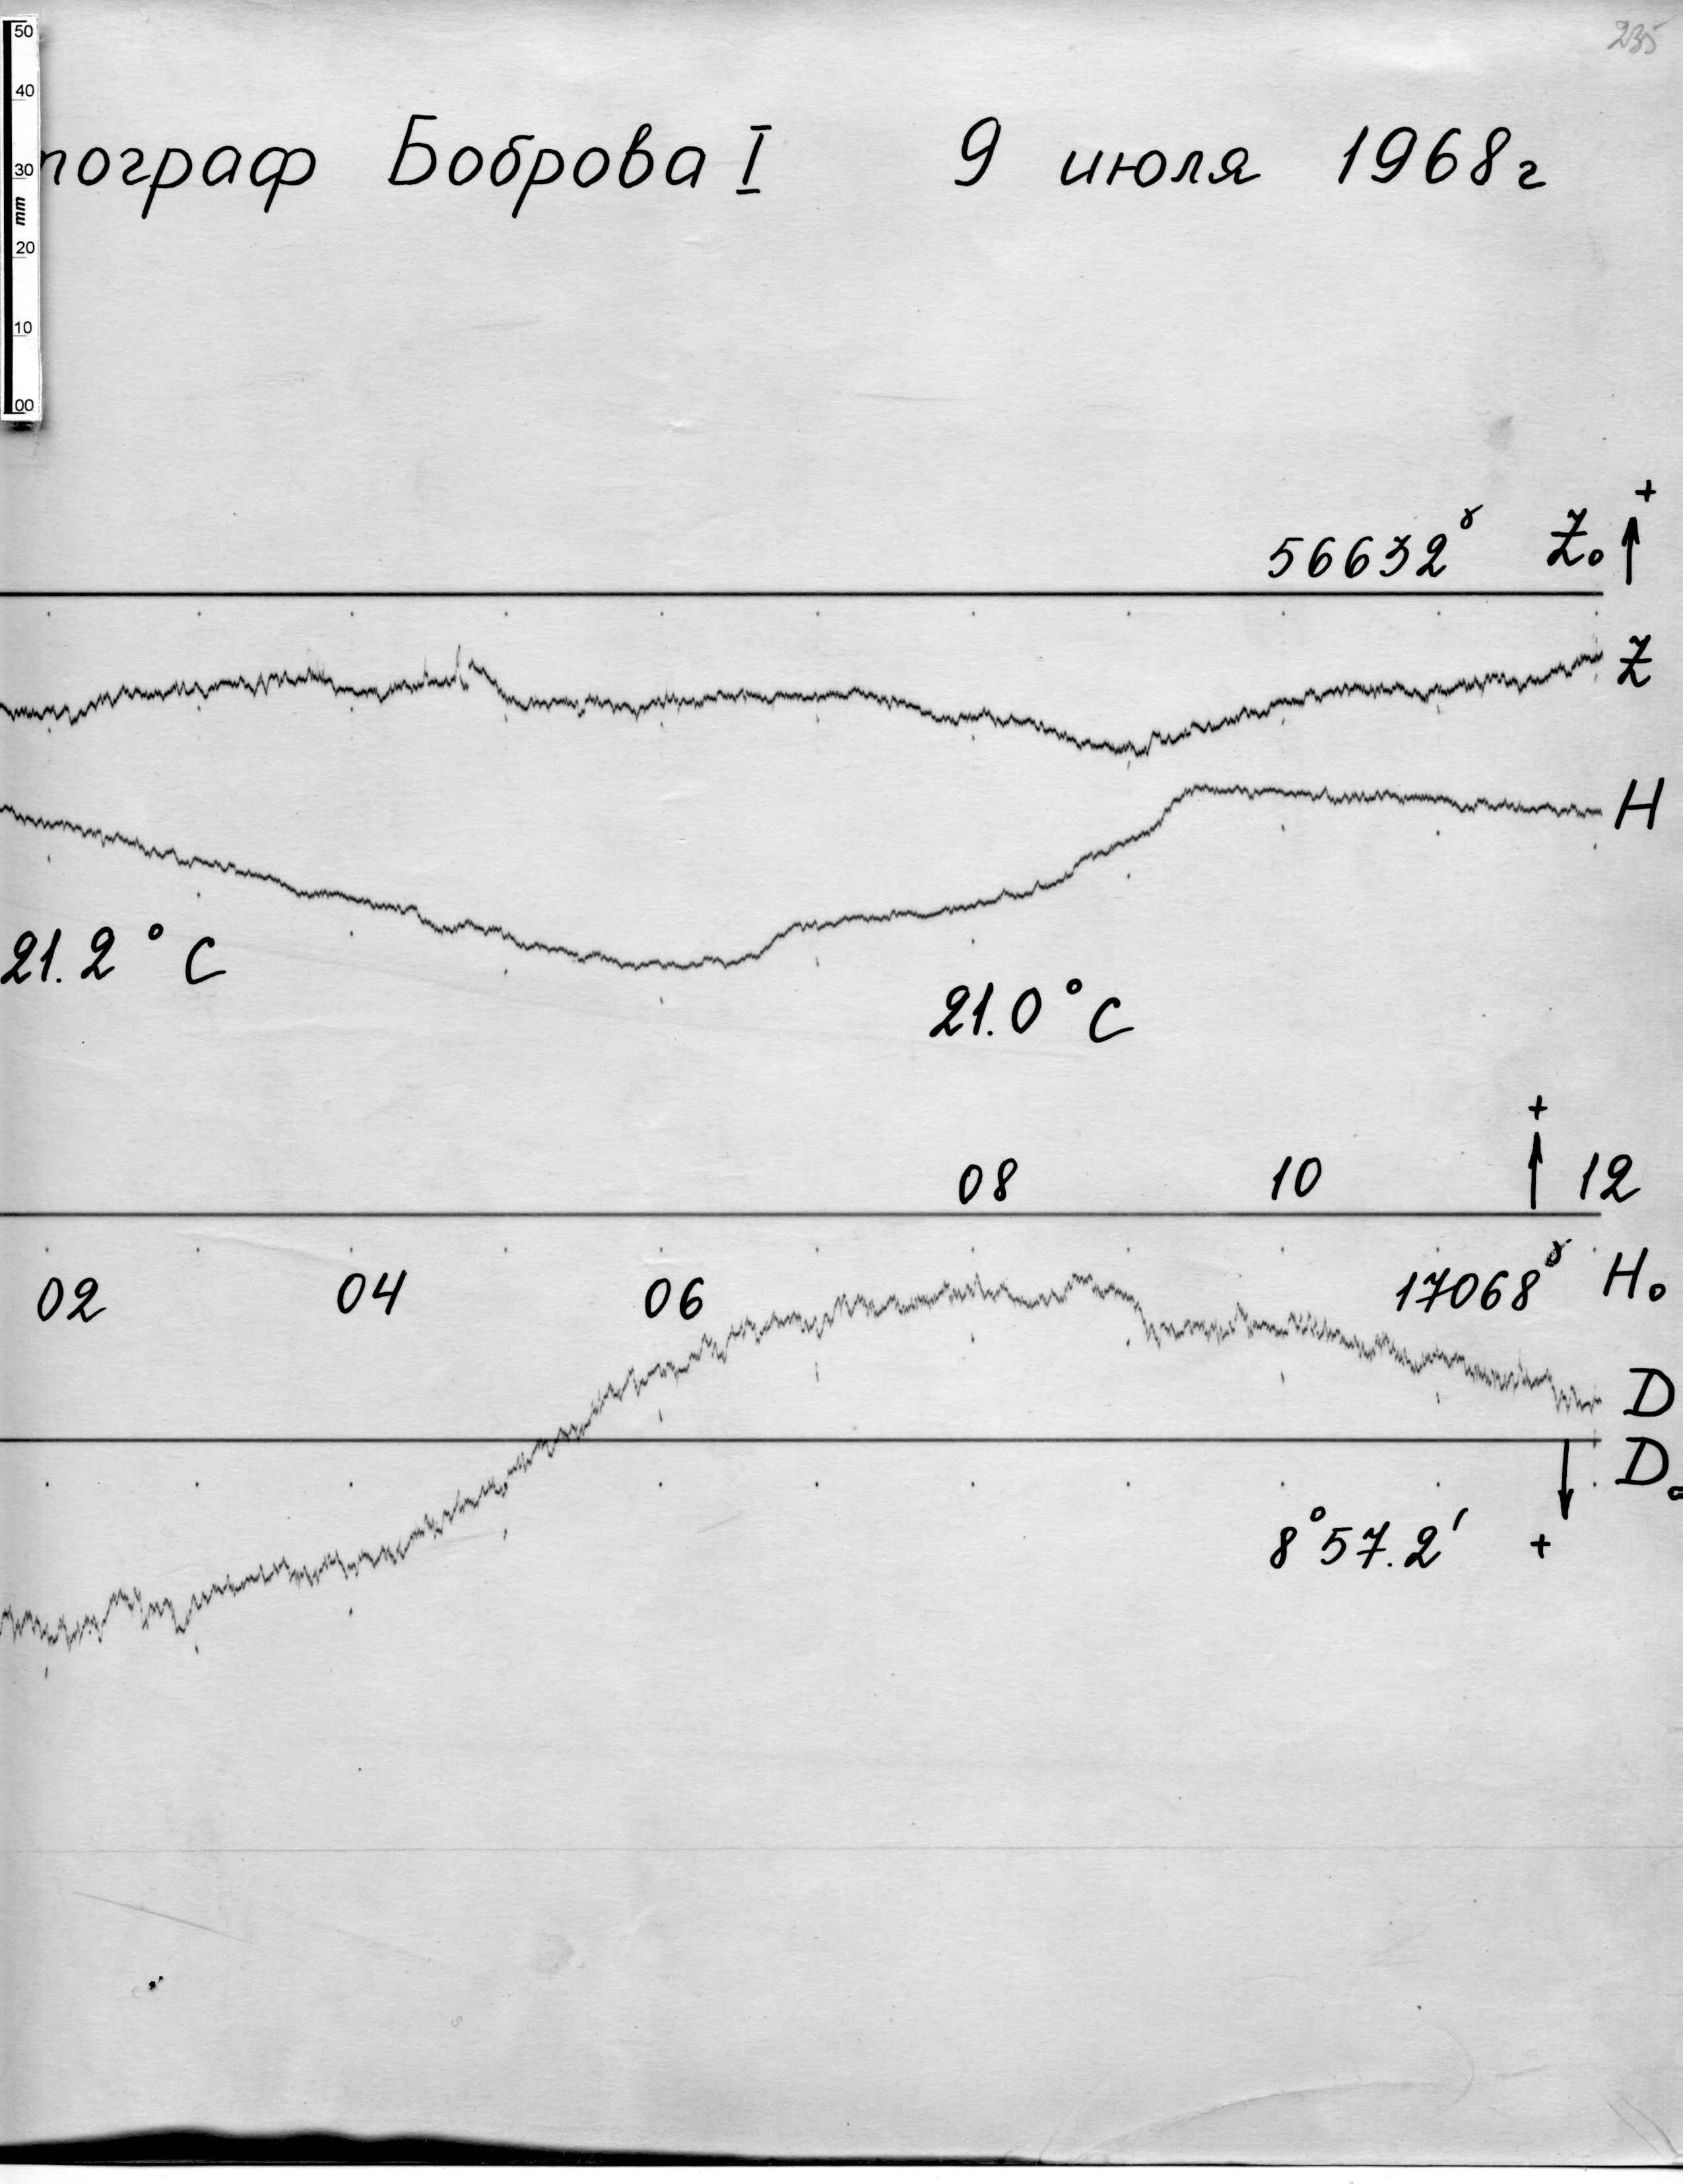 235
50
40
30
mm
20
10
00
тограф Боброва I 9 июля 1968г
+
56632γ Z₀
Z
H
21.2°C
21.0°C
+
08 10 12
02 04 06 17068γ H₀
D
D₀
8°57.2′ +